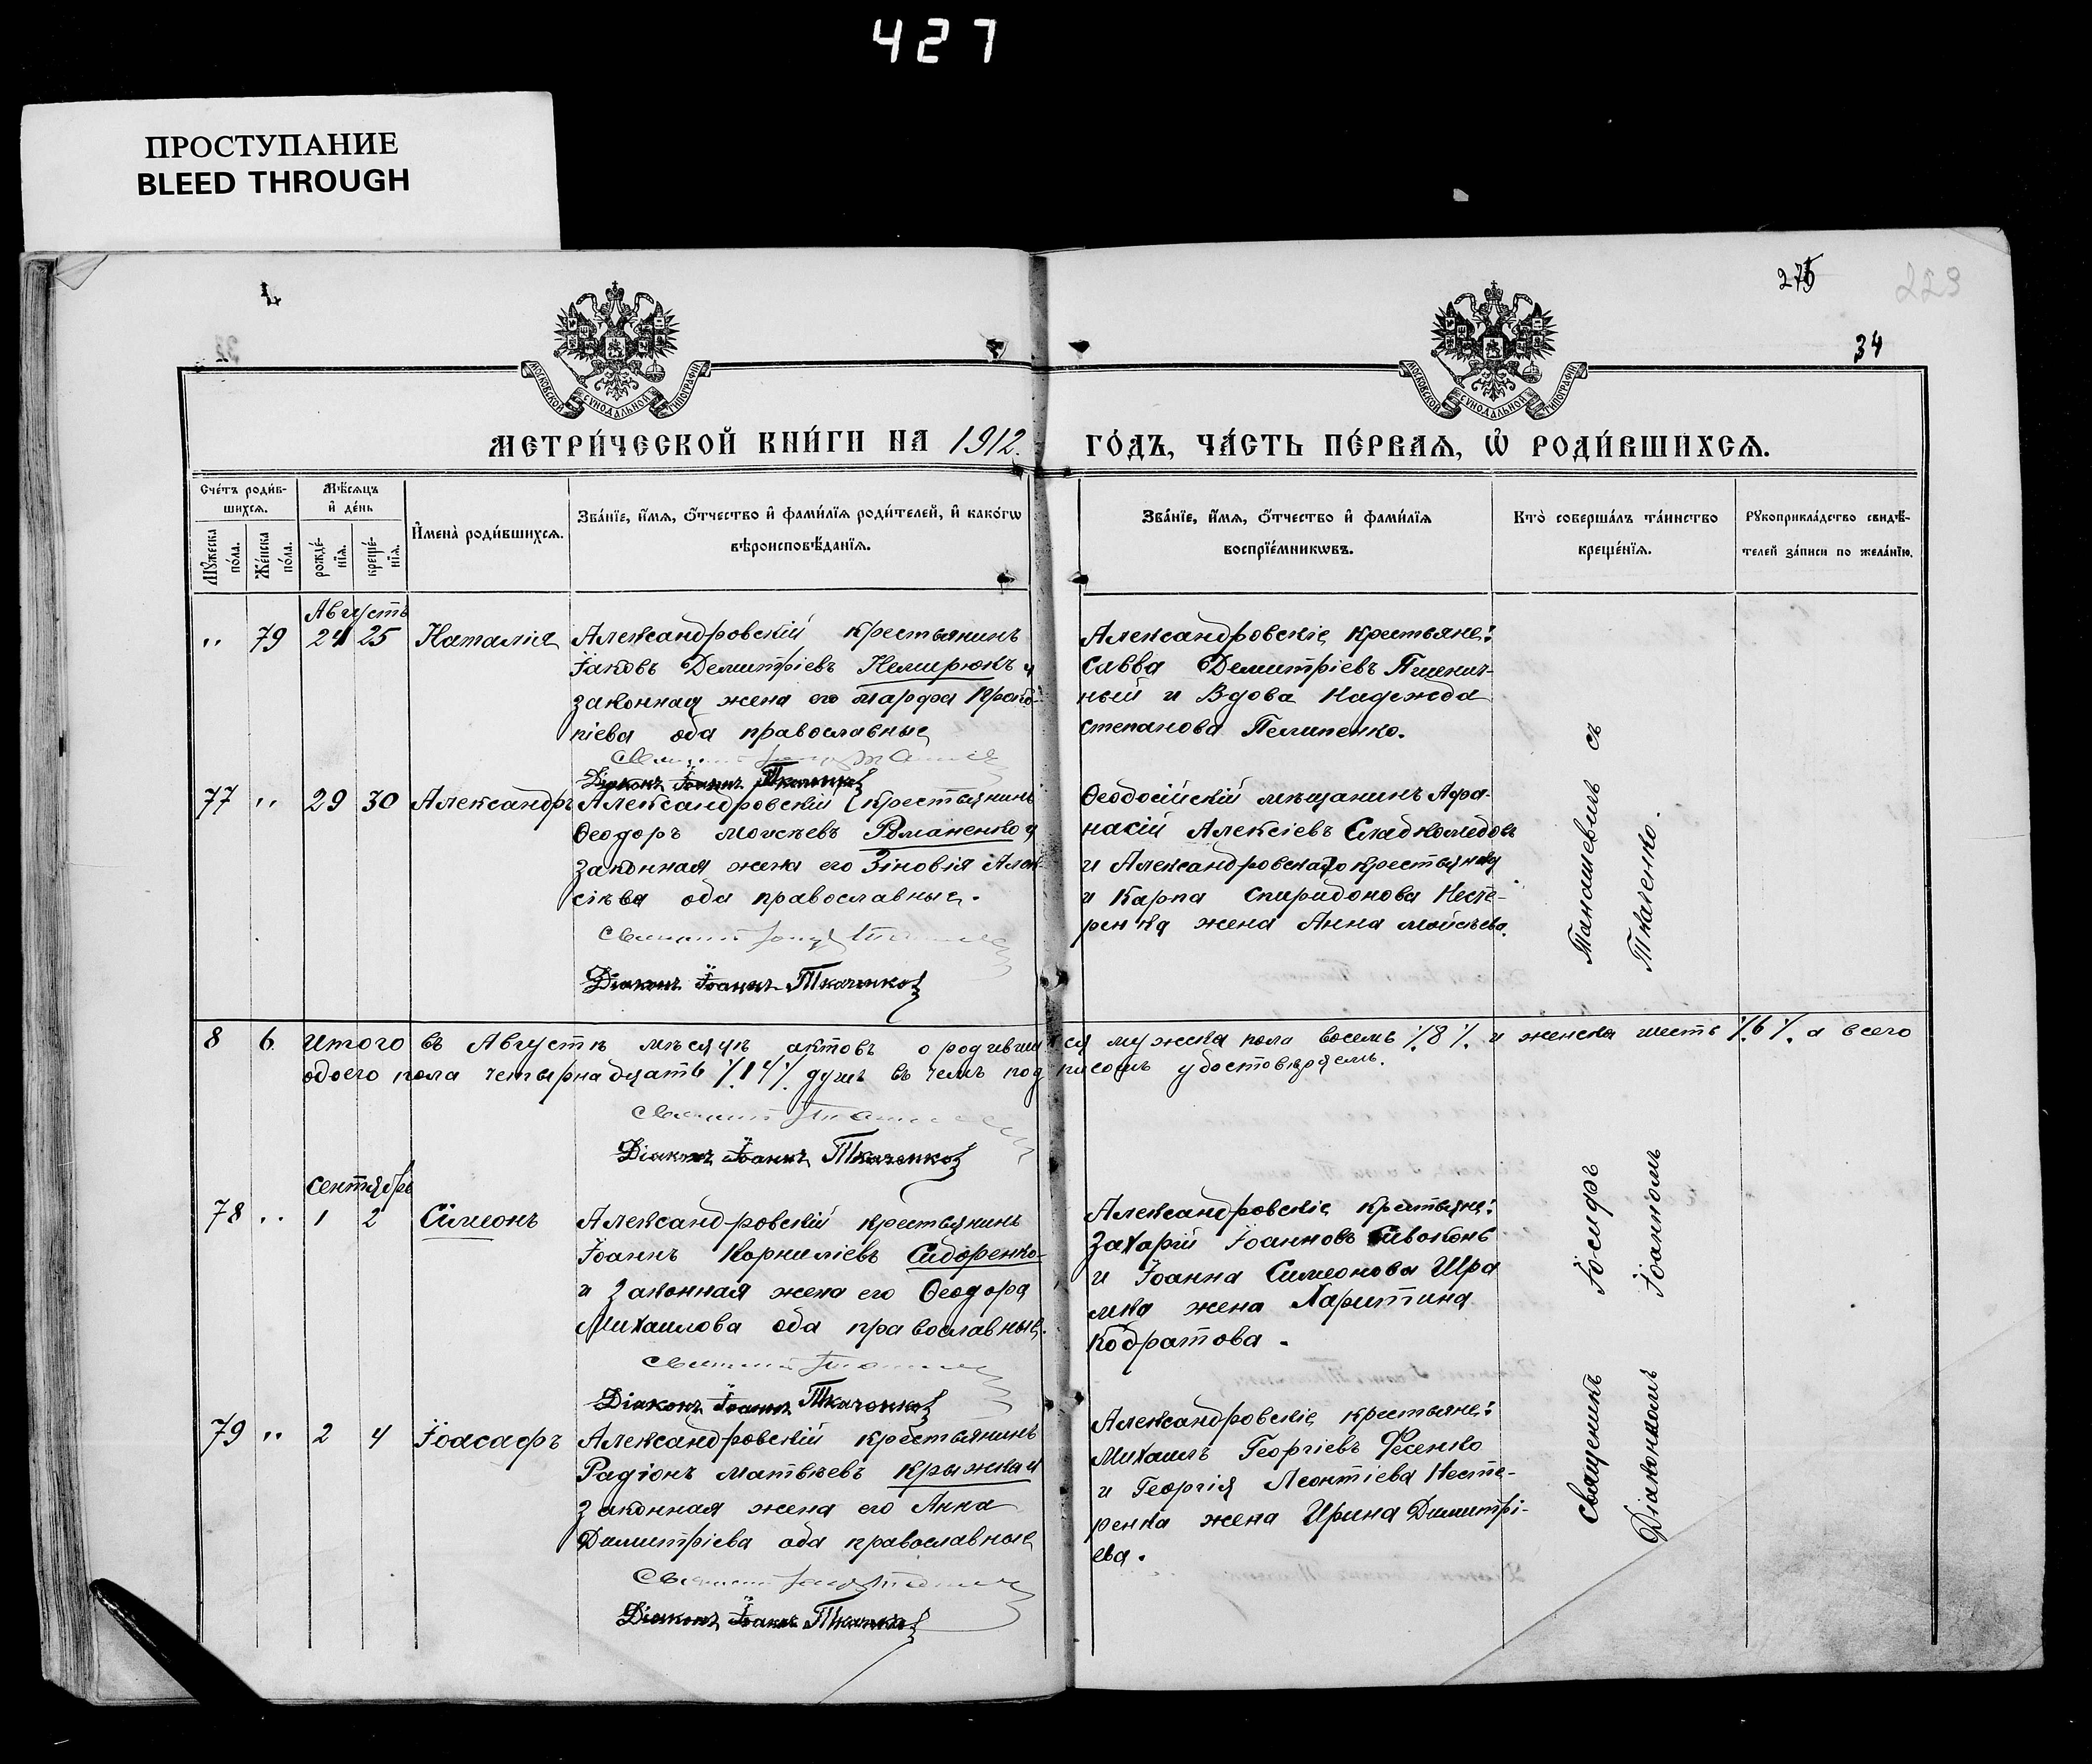 427
ПРОСТУПАНИЕ
BLEED THROUGH
275
229
34
МОСКОВСКОЙ СУНОДАЛЬНОЙ ТИПОГРАФІИ
МОСКОВСКОЙ СУНОДАЛЬНОЙ ТИПОГРАФІИ
МЕТРИ́ЧЕСКОЙ КНИ́ГИ НА 1912. ГО́ДЪ, ЧА́СТЬ ПЕ́РВАѦ, Ѡ҆ РОДИ́ВШИХСѦ.
Сче́тъ роди́в-
шихсѧ.
Мѣ́сѧцъ
и҆ де́нь
Мꙋ́жеска
по́ла.
Же́нска
по́ла.
рожде́-
нїѧ.
креще́-
нїѧ.
И҆мена̀ роди́вшихсѧ.
Зва́нїе, и҆́мѧ, ѻ҆́тчество и҆ фами́лїѧ роди́телей, и҆ како́гѡ
вѣроисповѣ́данїѧ.
Зва́нїе, и҆́мѧ, ѻ҆́тчество и҆ фами́лїѧ
воспрїе́мникѡвъ.
Кто̀ соверша́лъ та́инство
креще́нїѧ.
Рꙋкоприкла́дство свидѣ́-
телей за́писи по жела́нїю.
Августъ
„ 79 24 25 Наталія Александровскій крестьянинъ
Іаковъ Демитріевъ Немирюкъ и
законная жена его Марфа Проко-
піева оба православные
Діаконъ Іоаннъ Ткаченко
Александровскіе крестьяне:
Савва Демитріевъ Пшенич-
ный и Вдова Надежда
Степанова Пелипенко.
77 „ 29 30 Александръ Александровскій крестьянинъ
Ѳеодоръ Моисѣевъ Романенко и
законная жена его Зіновія Алек-
сіева оба православные.
Діаконъ Іоаннъ Ткаченко
Ѳеодосійскій мѣщанинъ Афа-
насій Алексіевъ Сладкомедовъ
и Александровскаго крестьянина
и Карпа Спиридонова Несте-
ренка жена Анна Мойсѣева.
8 6 Итого въ Августѣ мѣсяцѣ актовъ о родившихся мужеска пола восемь ٪8٪ и женска шесть ٪6٪ а всего
обоего пола четырнадцать ٪14٪ душъ въ чемъ подписомъ удостовѣряемъ.
Діаконъ Іоаннъ Ткаченко
Сентябрь
78 „ 1 2 Сімеонъ Александровскій крестьянинъ
Іоаннъ Корниліевъ Сидоренко
и законная жена его Ѳеодора
Михаилова оба православные.
Діаконъ Іоаннъ Ткаченко
Александровскіе крестьяне:
Захарій Іоанновъ Сивоконь
и Іоанна Симеонова Шра
мка жена Харитина
Кодратова.
79 „ 2 4 Іоасафъ Александровскій крестьянинъ
Радіонъ Матвѣевъ Крыжка и
законная жена его Анна
Димитріева оба православные
Діаконъ Іоаннъ Ткаченко
Александровскіе крестьяне:
Михаилъ Георгіевъ Фесенко
и Георгія Леонтіева Несте-
ренка жена Ирина Димитрі-
ева.
Священникъ Іосифъ Танашевичъ съ
Діакономъ Іоанномъ Ткаченко.